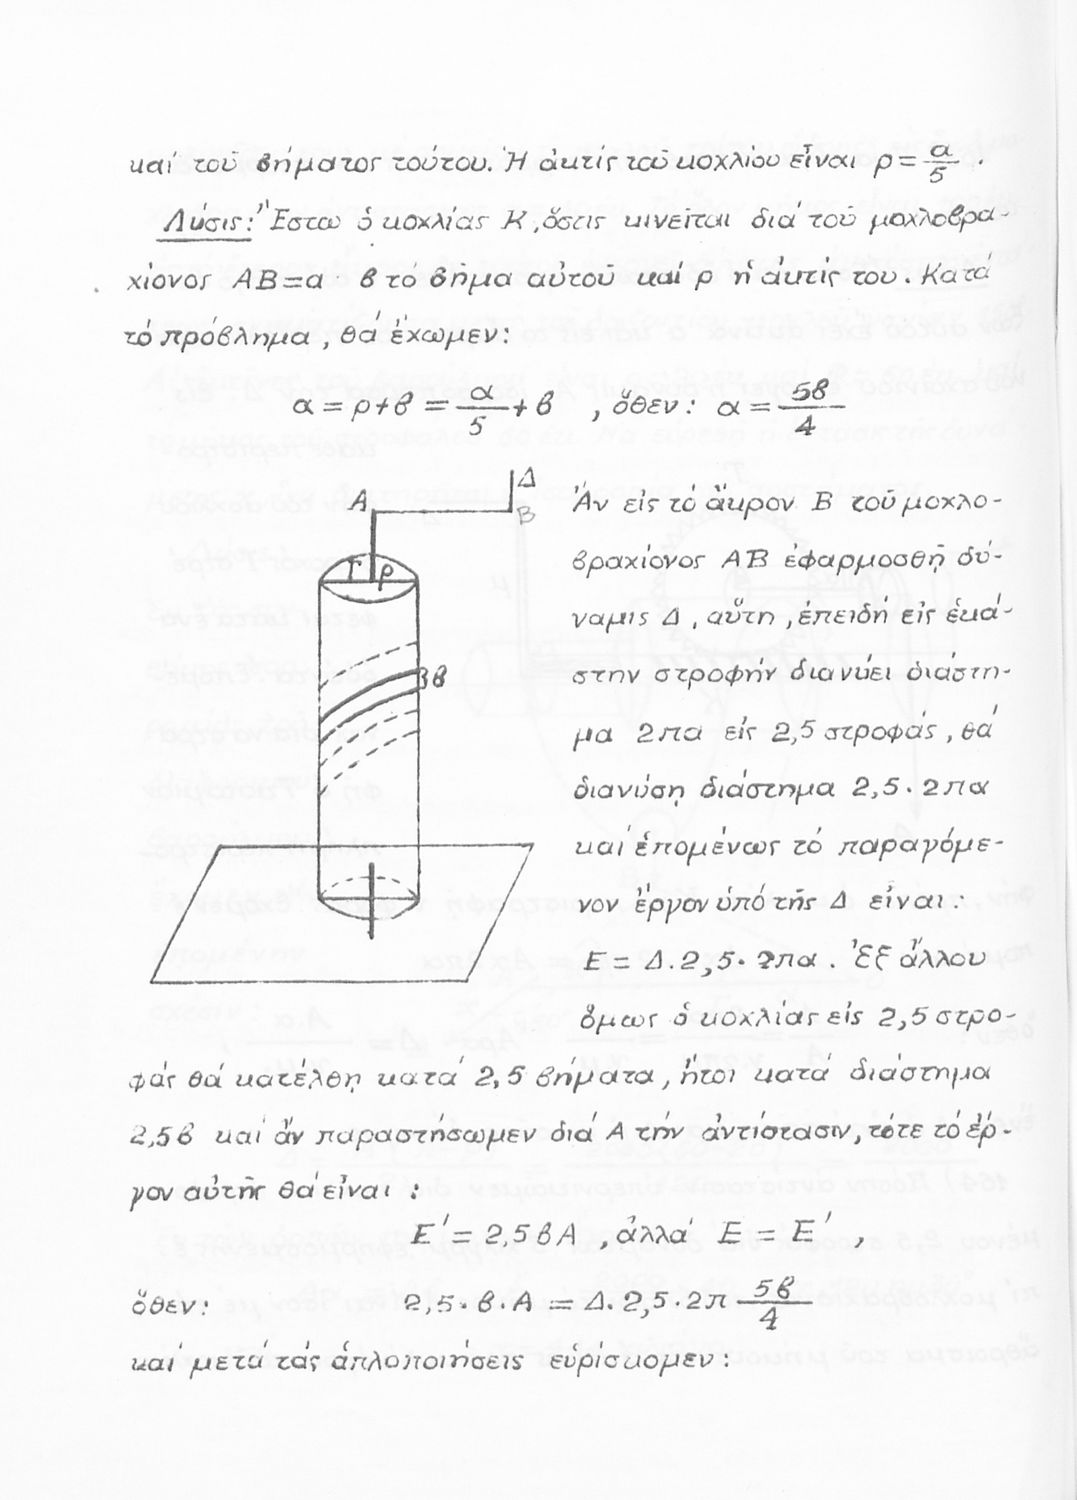 καί τοῦ βήματος τούτου. Ἡ ἀκτίς τοῦ κοχλίου εἶναι ρ = α/5 .
Λύσις: Ἔστω ὁ κοχλίας Κ, ὅστις κινεῖται διά τοῦ μοχλοβρα-
χίονος ΑΒ=α β τό βῆμα αὐτοῦ καί ρ ἡ ἀκτίς του. Κατά
τό πρόβλημα, θά ἔχωμεν:
α = ρ+β = α/5 + β , ὅθεν: α = 5β/4
Α
Δ
Β
Γ
ρ
β
Ἄν εἰς τό ἄκρον Β τοῦ μοχλο-
βραχίονος ΑΒ ἐφαρμοσθῇ δύ-
ναμις Δ, αὕτη, ἐπειδή εἰς ἑκά-
στην στροφήν διανύει διάστη-
μα 2πα εἰς 2,5 στροφάς, θά
διανύσῃ διάστημα 2,5 . 2πα
καί ἑπομένως τό παραγόμε-
νον ἔργον ὑπό τῆς Δ εἶναι:
Ε = Δ.2,5.2πα. Ἐξ ἄλλου
ὅμως ὁ κοχλίας εἰς 2,5 στρο-
φάς θά κατέλθῃ κατά 2,5 βήματα, ἤτοι κατά διάστημα
2,5β καί ἄν παραστήσωμεν διά Α τήν ἀντίστασιν, τότε τό ἔρ-
γον αὐτῆς θά εἶναι:
Ε' = 2,5βΑ , ἀλλά Ε = Ε' ,
ὅθεν: 2,5.β.Α = Δ.2,5.2π 5β/4
καί μετά τάς ἁπλοποιήσεις εὑρίσκομεν: